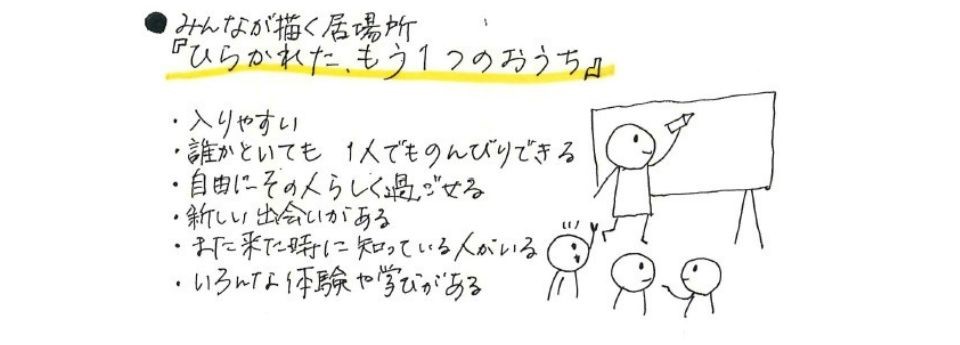 ● みんなが描く居場所
『ひらかれた、もう1つのおうち』
・入りやすい
・誰かといても 1人でものんびりできる
・自由にその人らしく過ごせる
・新しい出会いがある
・また来た時に知っている人がいる
・いろんな体験や学びがある